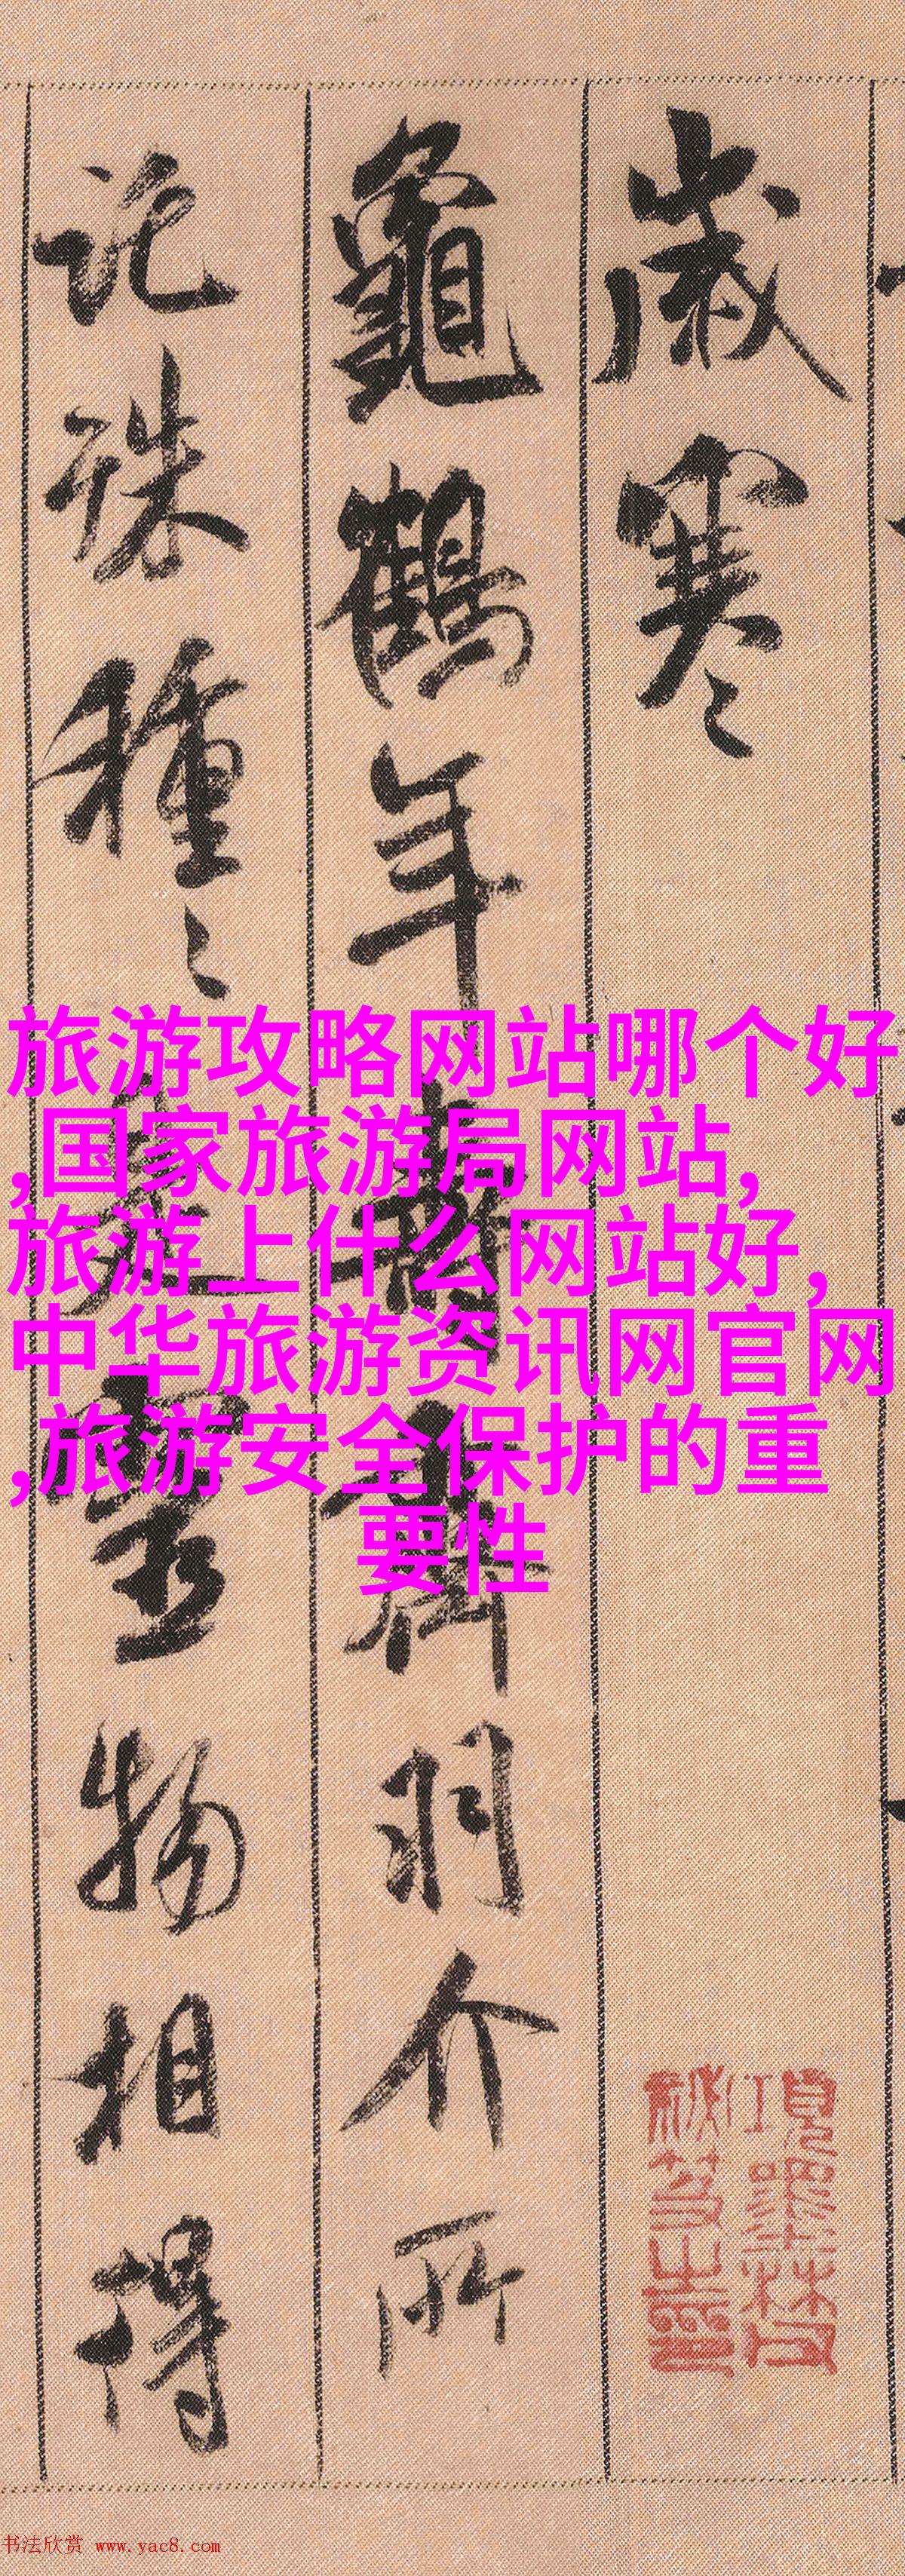 歲寒
龜鶴年壽齊羽介所
託殊種〻是靈物相得
旅游攻略网站哪个好
,国家旅游局网站,
旅游上什么网站好,
中华旅游资讯网官网
,旅游安全保护的重
要性
項墨林父
祕笈之印
书法欣赏 www.yac8.com